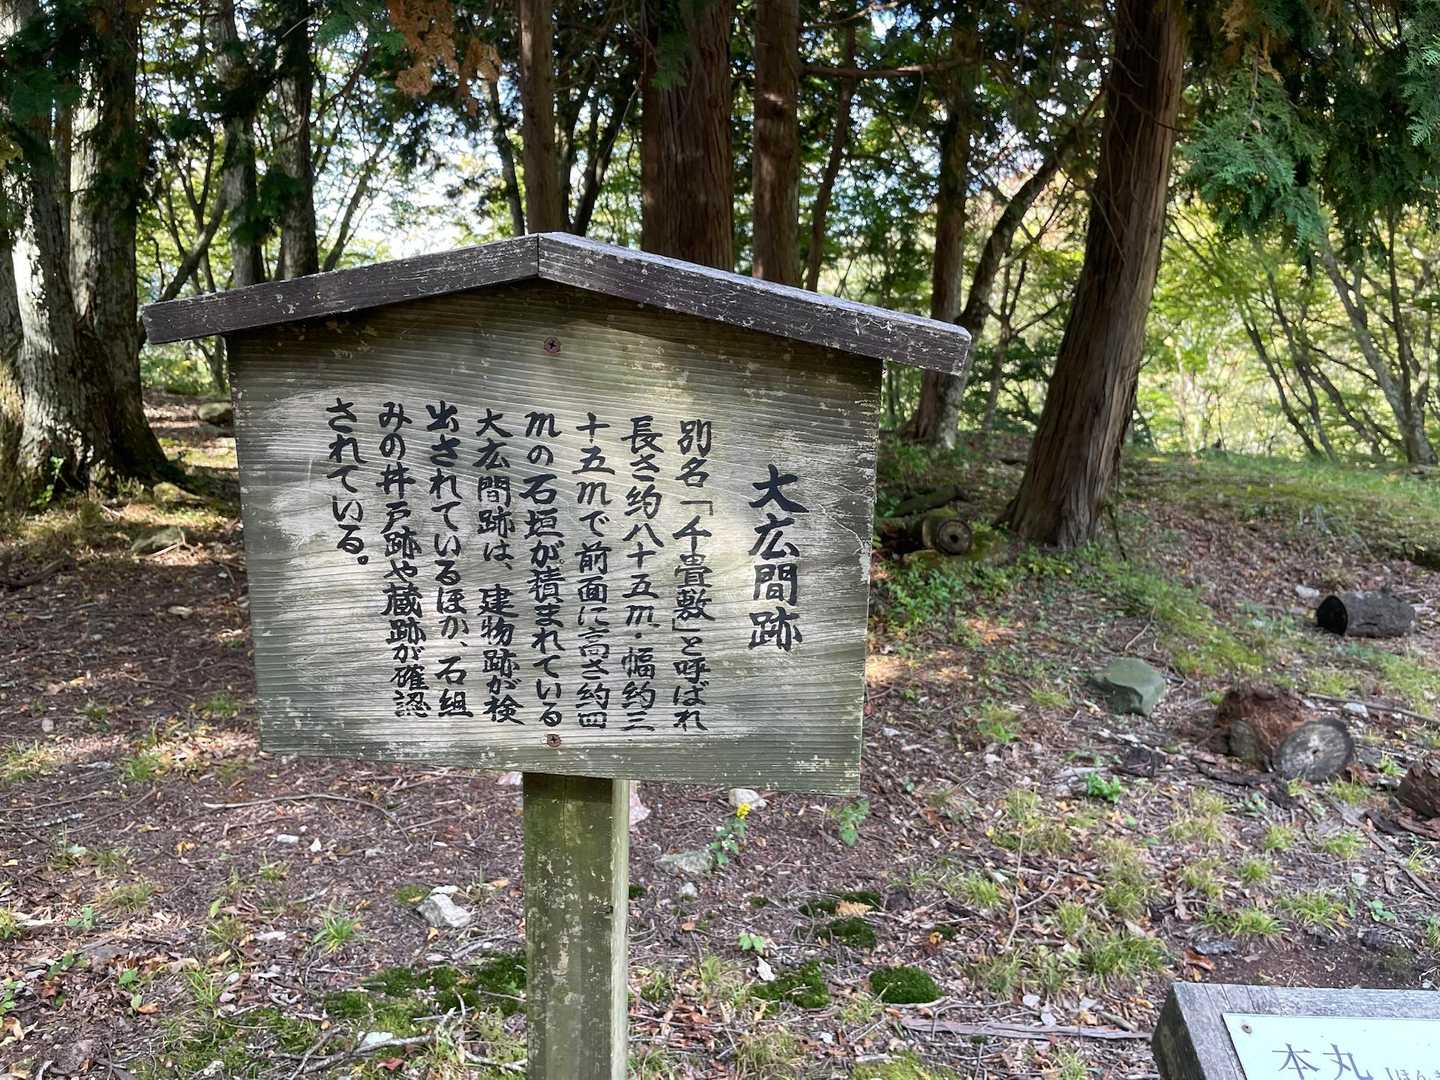 大広間跡
別名「千畳敷」と呼ばれ
長さ約八十五m・幅約三
十五mで前面に高さ約四
mの石垣が積まれている
大広間跡は、建物跡が検
出されているほか、石組
みの井戸跡や蔵跡が確認
されている。
本丸